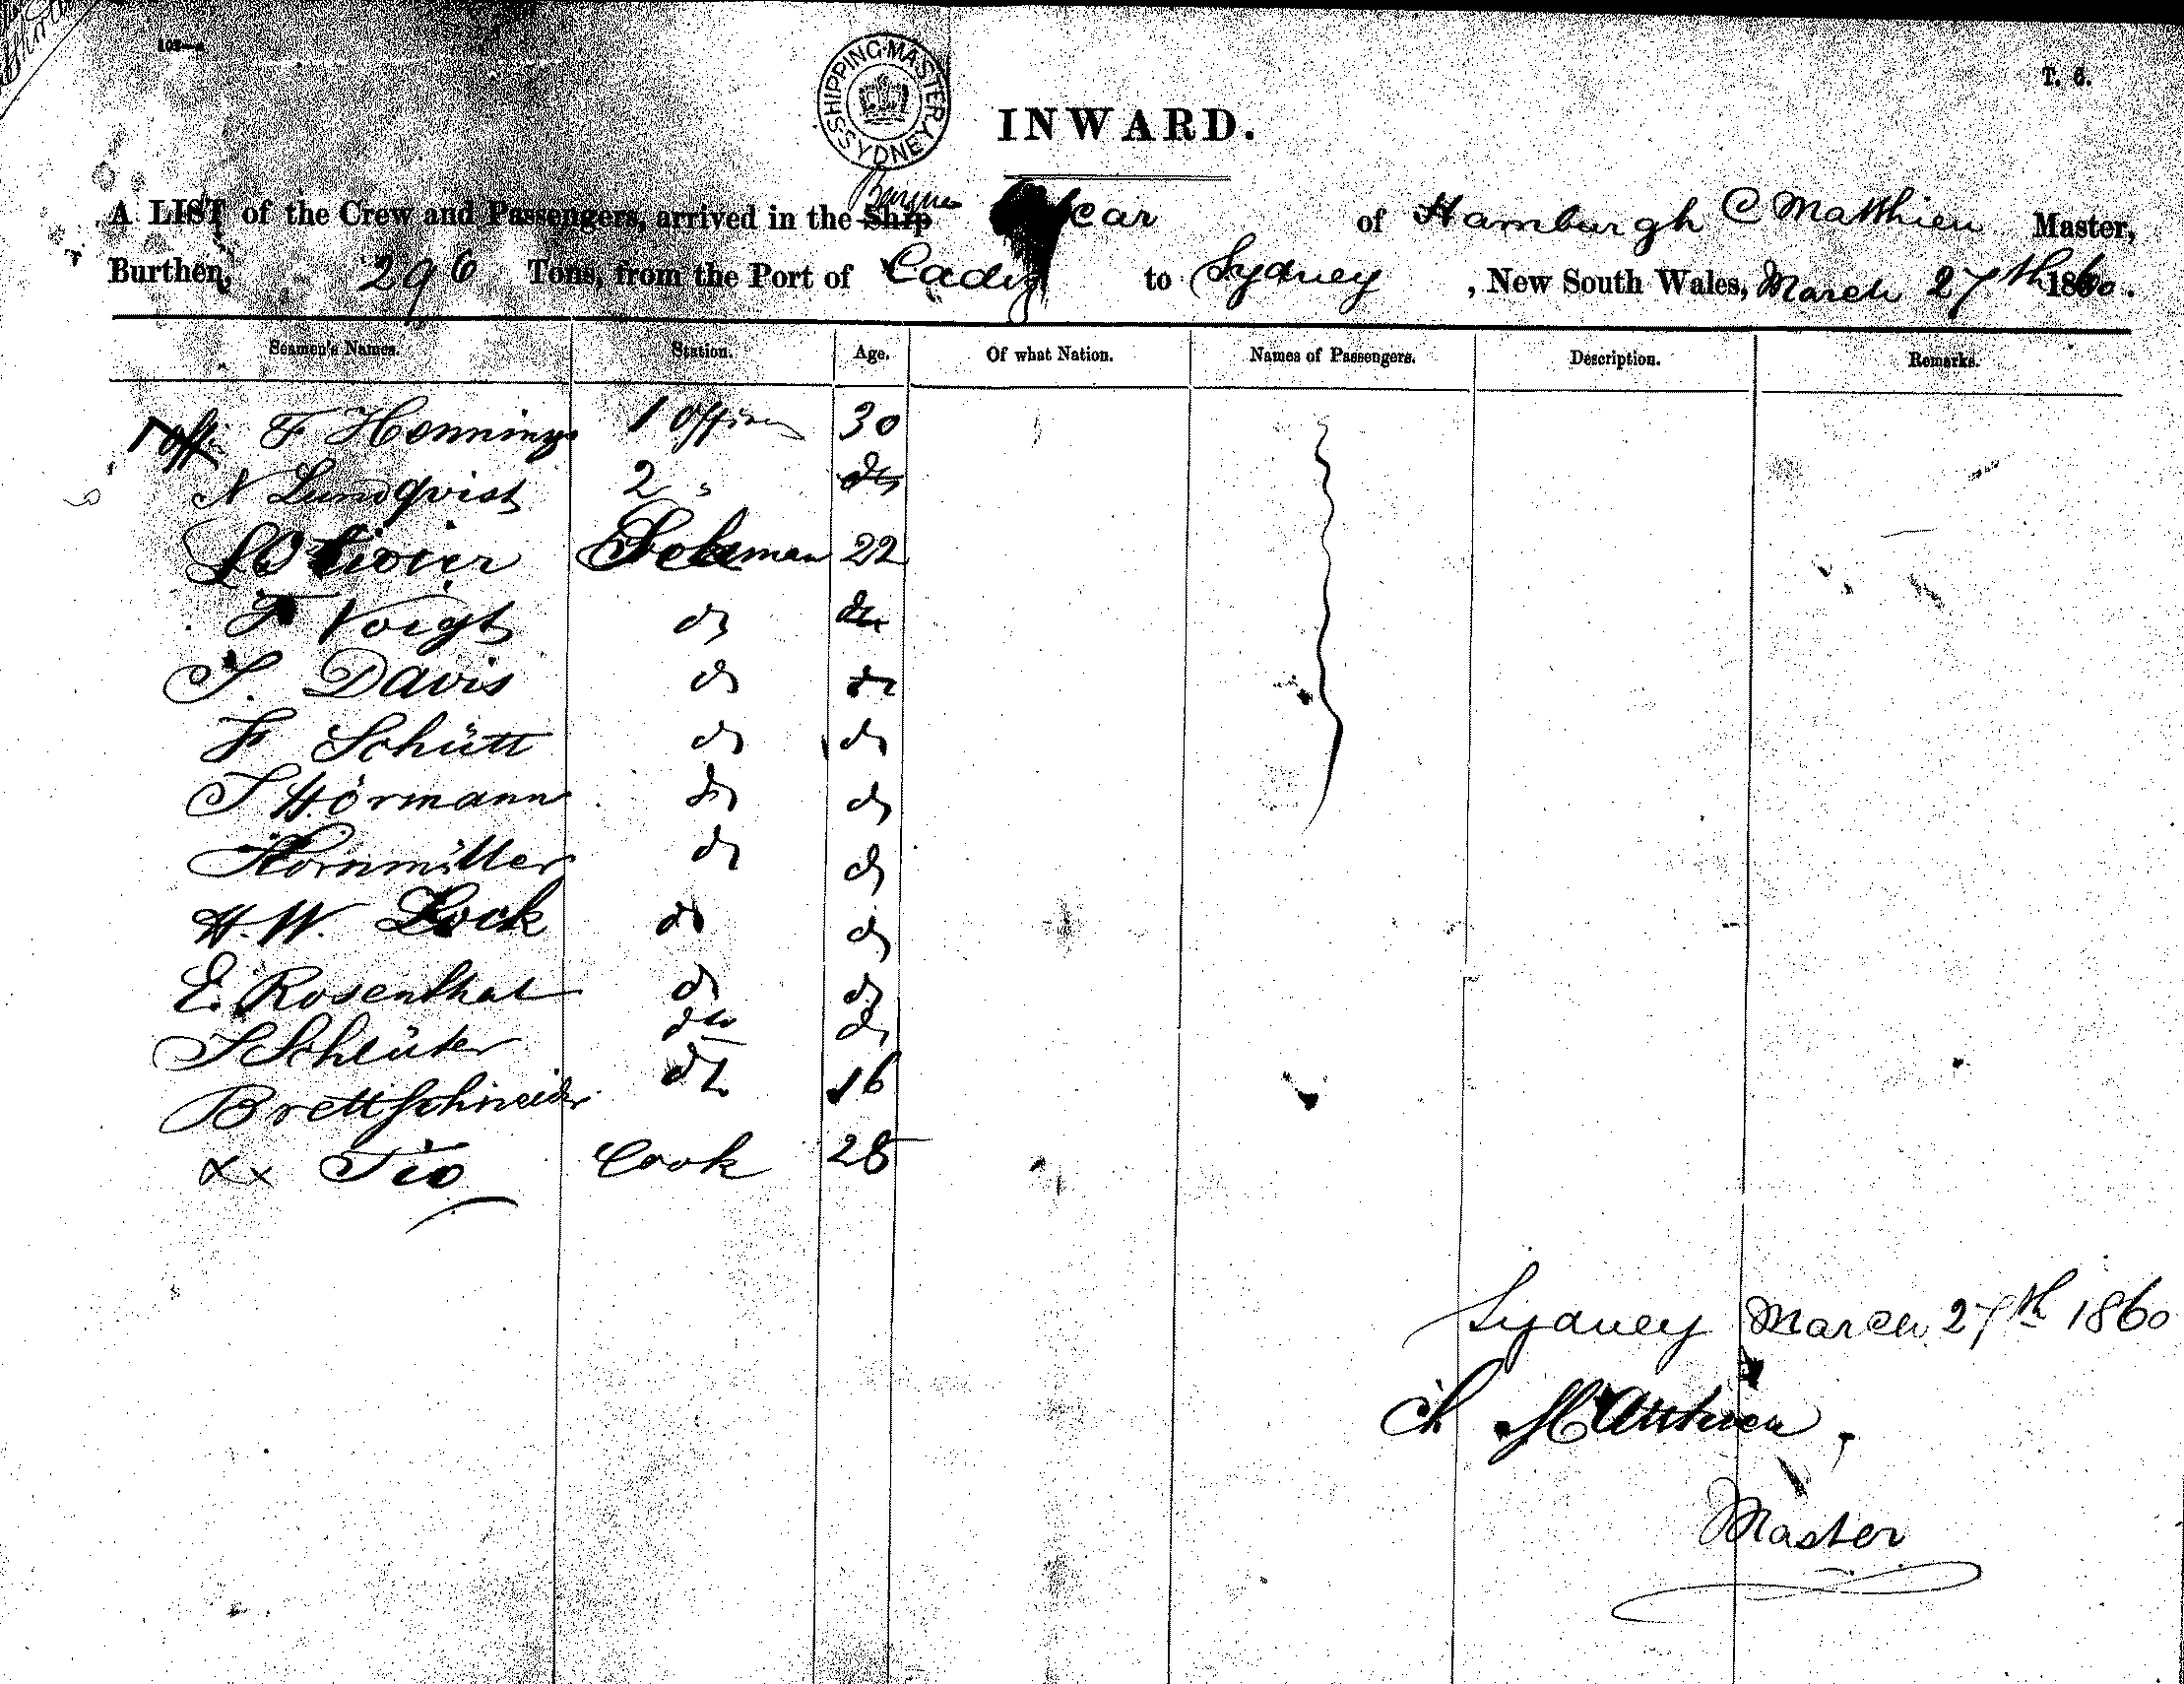 SHIPPING MASTER SYDNEY
T. 6.
INWARD.
A LIST of the Crew and Passengers, arrived in the Ship Barque car of Hamburgh C Matthieu Master,
Burthen, 296 Tons, from the Port of Cadiz to Sydney, New South Wales, March 27th 1860.
Seamen's Names. Station. Age. Of what Nation. Names of Passengers. Description. Remarks.
F Hennings 1 Officer 30
N Lundqvist 2 " do
22
F Voigt do do
J. Davis do do
F Schütt do do
J Hörmann do do
Kornmüller do do
H. W. Lock do do
E. Rosenthal do do
J Schlüter do do
Brettschneider do 16
xx Tio Cook 28
Sydney March 27th 1860
Ch Matthieu.
Master